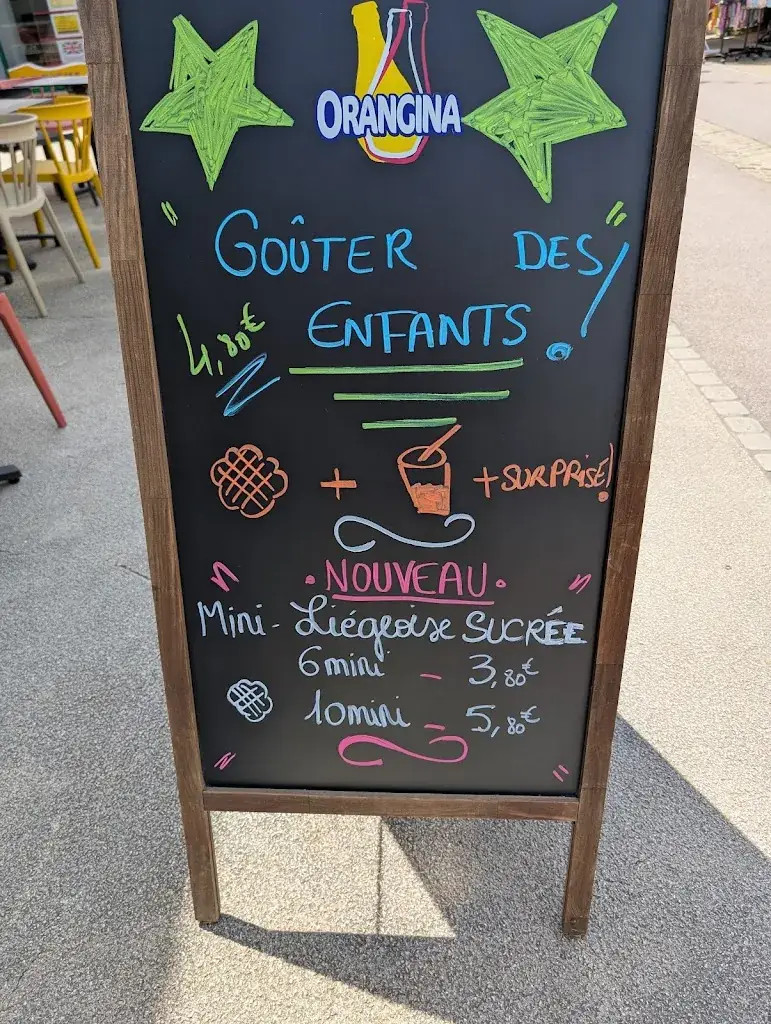 ORANGINA
GOÛTER DES
ENFANTS !
4,80€
+ + SURPRISE!
• NOUVEAU •
Mini - Liégeoise SUCRÉE
6 mini - 3,80€
10 mini - 5,80€